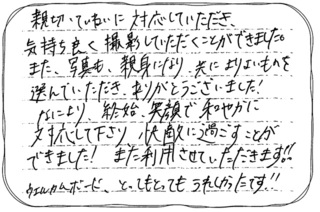 親切、ていねいに対応していただき、
気持ち良く撮影していただくことができました。
また、写真も、親身になり、共によりよいものを
選んでいただき、ありがとうございました!
なにより、終始、笑顔で和やかに
対応して下さり、快適に過ごすことが
できました! また利用させていただきます!!
ウェルカムボード、とってもとってもうれしかったです!!